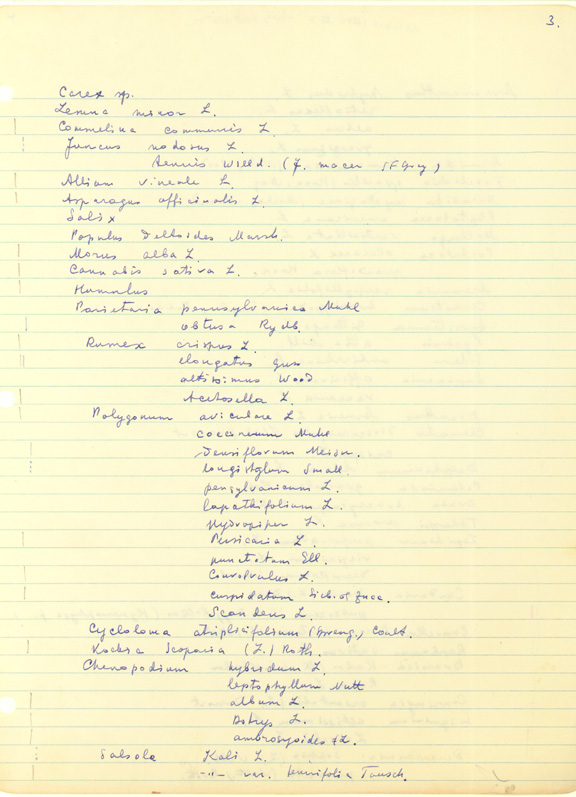 3.
Carex sp.
Lemna minor L.
Commelina communis L.
Juncus nodosus L.
tenuis Willd. (J. macer SFGray)
Allium vineale L.
Asparagus officinalis L.
Salix
Populus Deltoides Marsh.
Morus alba L.
Cannabis sativa L.
Humulus
Parietaria pennsylvanica Muhl
obtusa Rydb.
Rumex crispus L.
elongatus Guss
altissimus Wood.
Acetosella L.
Polygonum aviculare L.
coccineum Muhl
densiflorum Meisn.
longistylum Small
pensylvanicum L.
lapathifolium L.
Hydropiper L.
Persicaria L.
punctatum Ell.
Convolvulus L.
cuspidatum Sieb. et Zucc.
Scandens L.
Cycloloma atriplicifolium (Spreng.) Coult.
Kochia Scoparia (L.) Roth.
Chenopodium hybridum L.
leptophyllum Nutt
album L.
Botrys L.
ambrosyoides L.
Salsola Kali L.
-"- var. tenuifolia Tausch.